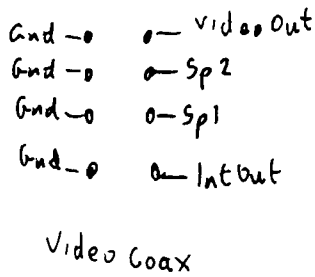 Gnd Video Out
Gnd Sp2
Gnd Sp1
Gnd Int Out
Video Coax